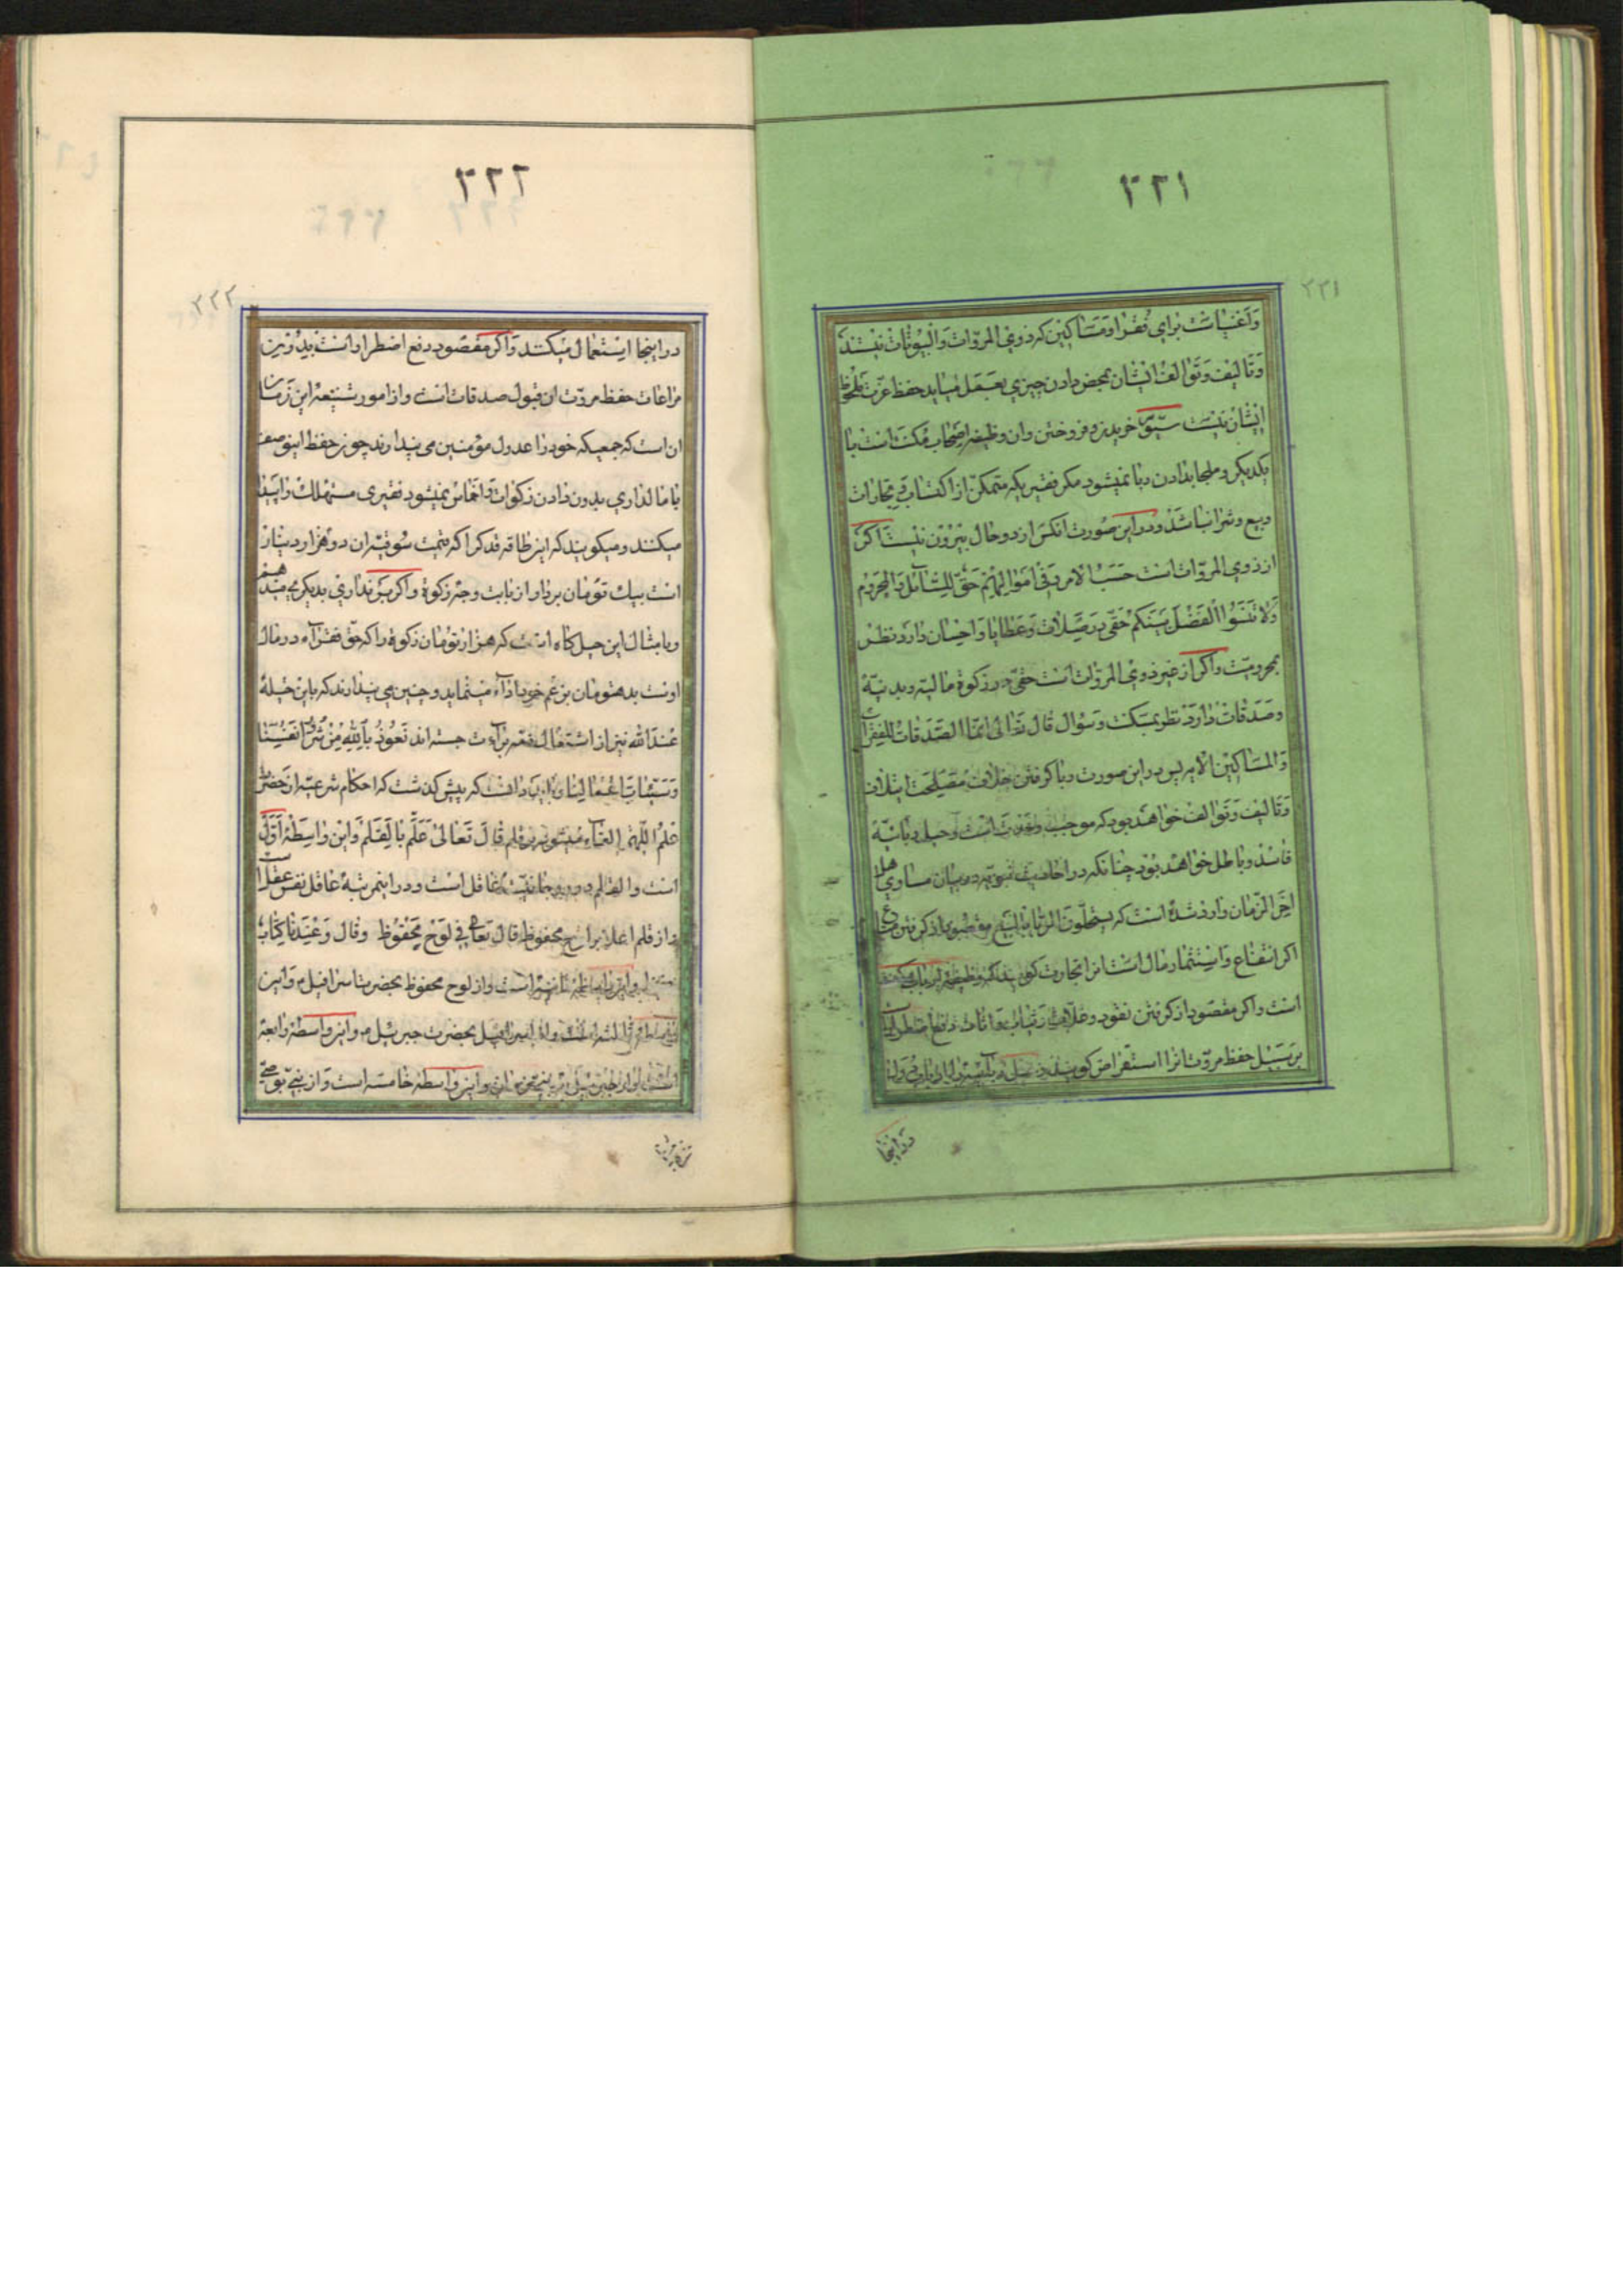 ۳۲۱
۳۲۱
و اغنیاست برای فقرا و مساکین که ذوی المروّات و البیوتات نیستند
و تالیف و توالف ایشان بمحض دادن چیزی بعمل میاید حفظ عزت ملحوظ
ایشان نیست سیّوم خریدن و فروختن و ان وظیفه اصحاب مکنت است با
یکدیگر و ملجا بدادن ربا نمیشود مکر فقیریکه متمکن از اکتساب و تجارات
و بیع و شرا نباشد و در این صورت انکس از دو حال بیرون نیست اکر
از ذوی المروّات است حسب الامر و فی اموالهم حق للسّائل و المحروم
و لا تنسوا الفضل بینکم حقی در صلات و عطایا و احسان دارد نظر
بمحرومیّت و اکر از غیر ذوی المروّات است حقی در زکوة مالیه و بدنیّه
و صدقات دارد نظر بمسکنت و سؤال قال تعالی انّما الصّدقات للفقراء
و المساکین الایه پس در این صورت ربا کرفتن خلاف مصلحت ایتلاف
و تالیف و توالف خواهد بود که موجب است و حیل ربائیّه
فاسد و باطل خواهد بود چنانکه در احادیث نبویّه در بیان مساوی اهل
اخر الزّمان وارد شده است که یستحلّون الرّبا بالبیع مقصود از کرفتن
اکر انتفاع و استثمار مال است انرا تجارت کویند که وظیفه
است و اکر مقصود از کرفتن نقود و غلّات و ثیاب و اثاث دفع اضطرار است
بر سبیل حفظ مروّت انرا استقراض کویند
در اینجا
۳۲۲
۳۲۲
در اینجا استعمال میکنند و اکر مقصود دفع اضطرار است بدون
مراعات حفظ مروّت ان قبول صدقات است و از امور شنیعه این زمان
ان است که جمعیکه خود را عدول مؤمنین می پندارند چون حفظ
با مالداری بدون دادن زکوات و اخماس نمیشود فقیری مستهلک را پیدا
میکنند و میکویند که این طاقه قدک را که قیمت سوقیّه ان دو هزار دینار
است بیک تومان بردار از بابت وجه زکوة و اکر بر نداری بدیکری میدهم
و بامثال این حیل کاه است که هزار تومان زکوة را که حق فقراء در مال
اوست بده تومان بزعم خود اداء مینماید و چنین می پندارند که باین حیله
عند الله نیز از اشتغال ذمّه براءت جسته اند نعوذ بالله من شرور انفسنا
و سیّئات اعمالنا ای اب دانست که پیش کذشت که احکام شرعیّه از حضرت
علم اللّهی القاء میشود بر قلم قال تعالی علّم بالقلم و این واسطه اوّل
است و القلم و روحانیّت عاقل است و در اینمرتبه عاقل نفس عقل است
و از قلم اعلا بر لوح محفوظ قال تعالی فی لوح محفوظ و قال و عندنا کتاب
حفیظ و این واسطه ثانیه است و از لوح محفوظ بحضرت اسرافیل م و این
واسطه ثالثه است و از اسرافیل بحضرت جبرئیل م و این واسطه رابعه
است و از جبرئیل به پیغمبران و این واسطه خامسه است و از نبیّ بوصیّ